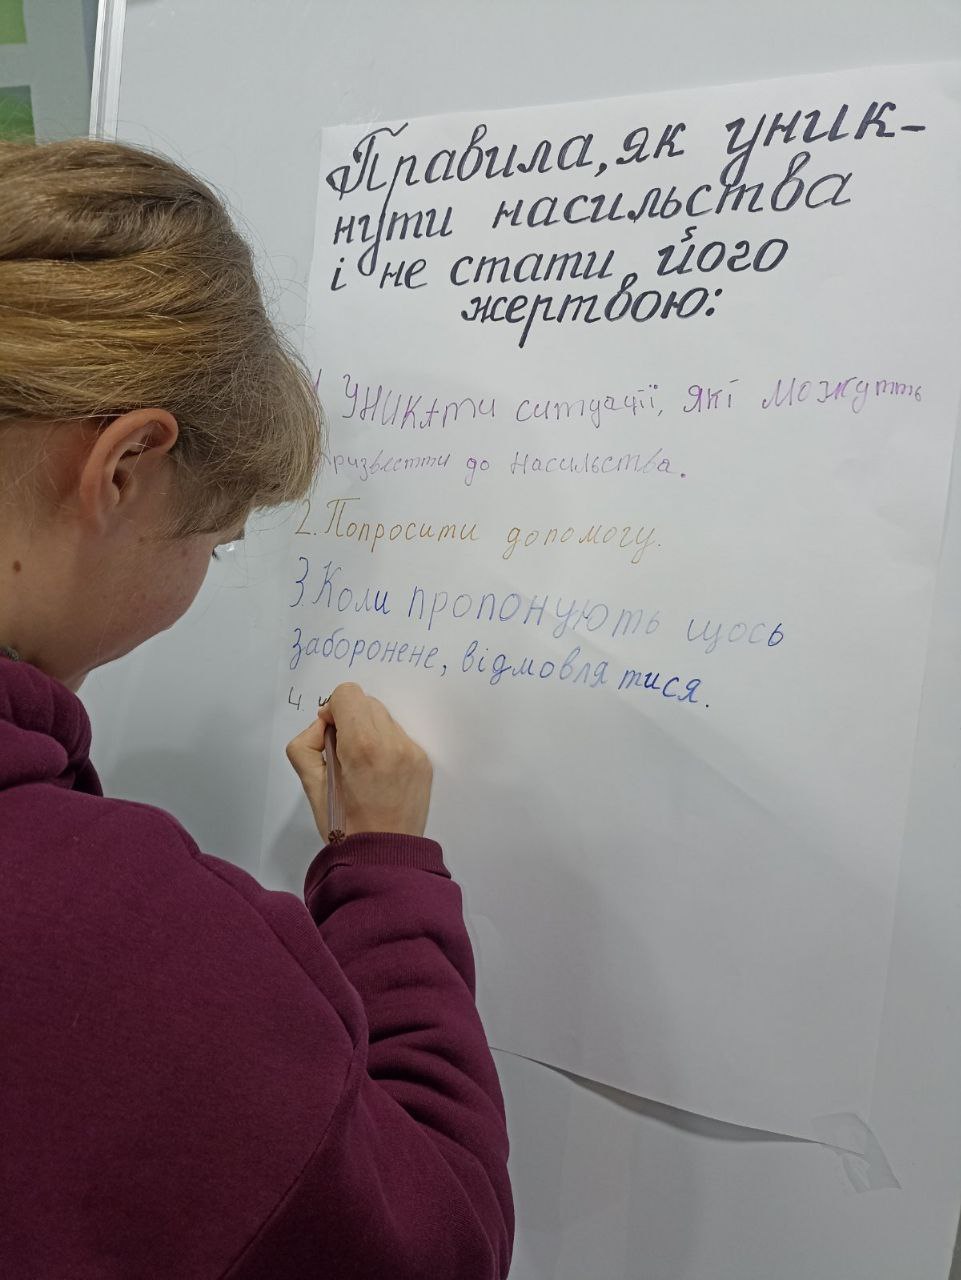 Правила, як уник-
нути насильства
і не стати його
жертвою:
1. Уникати ситуації, які можуть
призвести до насильства.
2. Попросити допомогу.
3. Коли пропонують щось
заборонене, відмовлятися.
4.